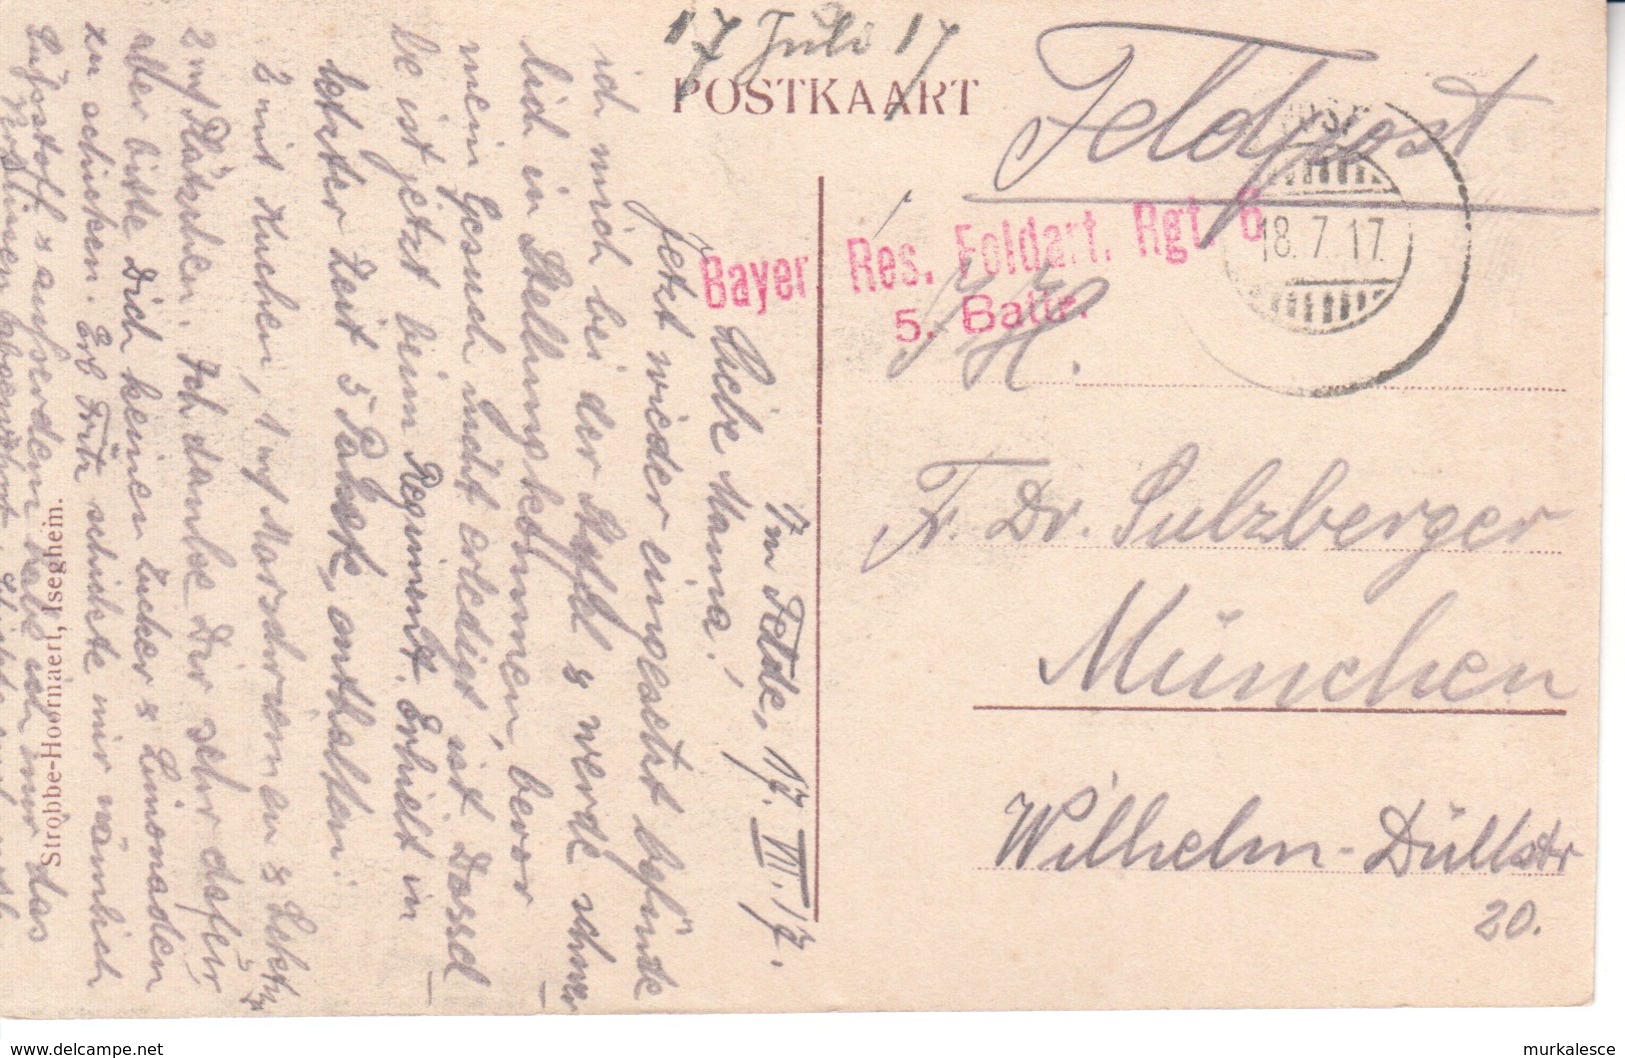 17 Juli 17
POSTKAART
Feldpost
POST
18.7.17.
Bayer. Res. Feldart. Rgt. 6
5. Battr.
S. H.
Fr. Dr. Sulzberger
München
Wilhelm-Düllstr
20.
Im Felde, 17. VII. 17.
Liebe Mama!
Jetzt wieder eingesetzt befinde
ich mich bei der Staffel & werde schwer
lich in Stellung kommen, bevor
mein Gesuch nicht erledigt ist. Dassel-
be ist jetzt beim Regiment. Erhielt in
letzter Zeit 5 Pakete, enthalten:
2 mit Kuchen, 1 m/ &
2 m/ Plätzchen. Ich danke Dir sehr dafür
aber bitte Dich keinen Zucker & Limonaden
zu schicken. Fritz schickte mir nämlich
Süßstoff & außerdem
Strobbe-Hoornaert, Iseghein.
www.delcampe.net
murkalesce